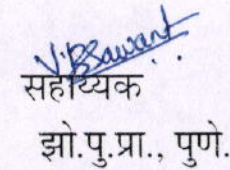 V.B.Sawant
सहाय्यक
झो.पु.प्रा., पुणे.